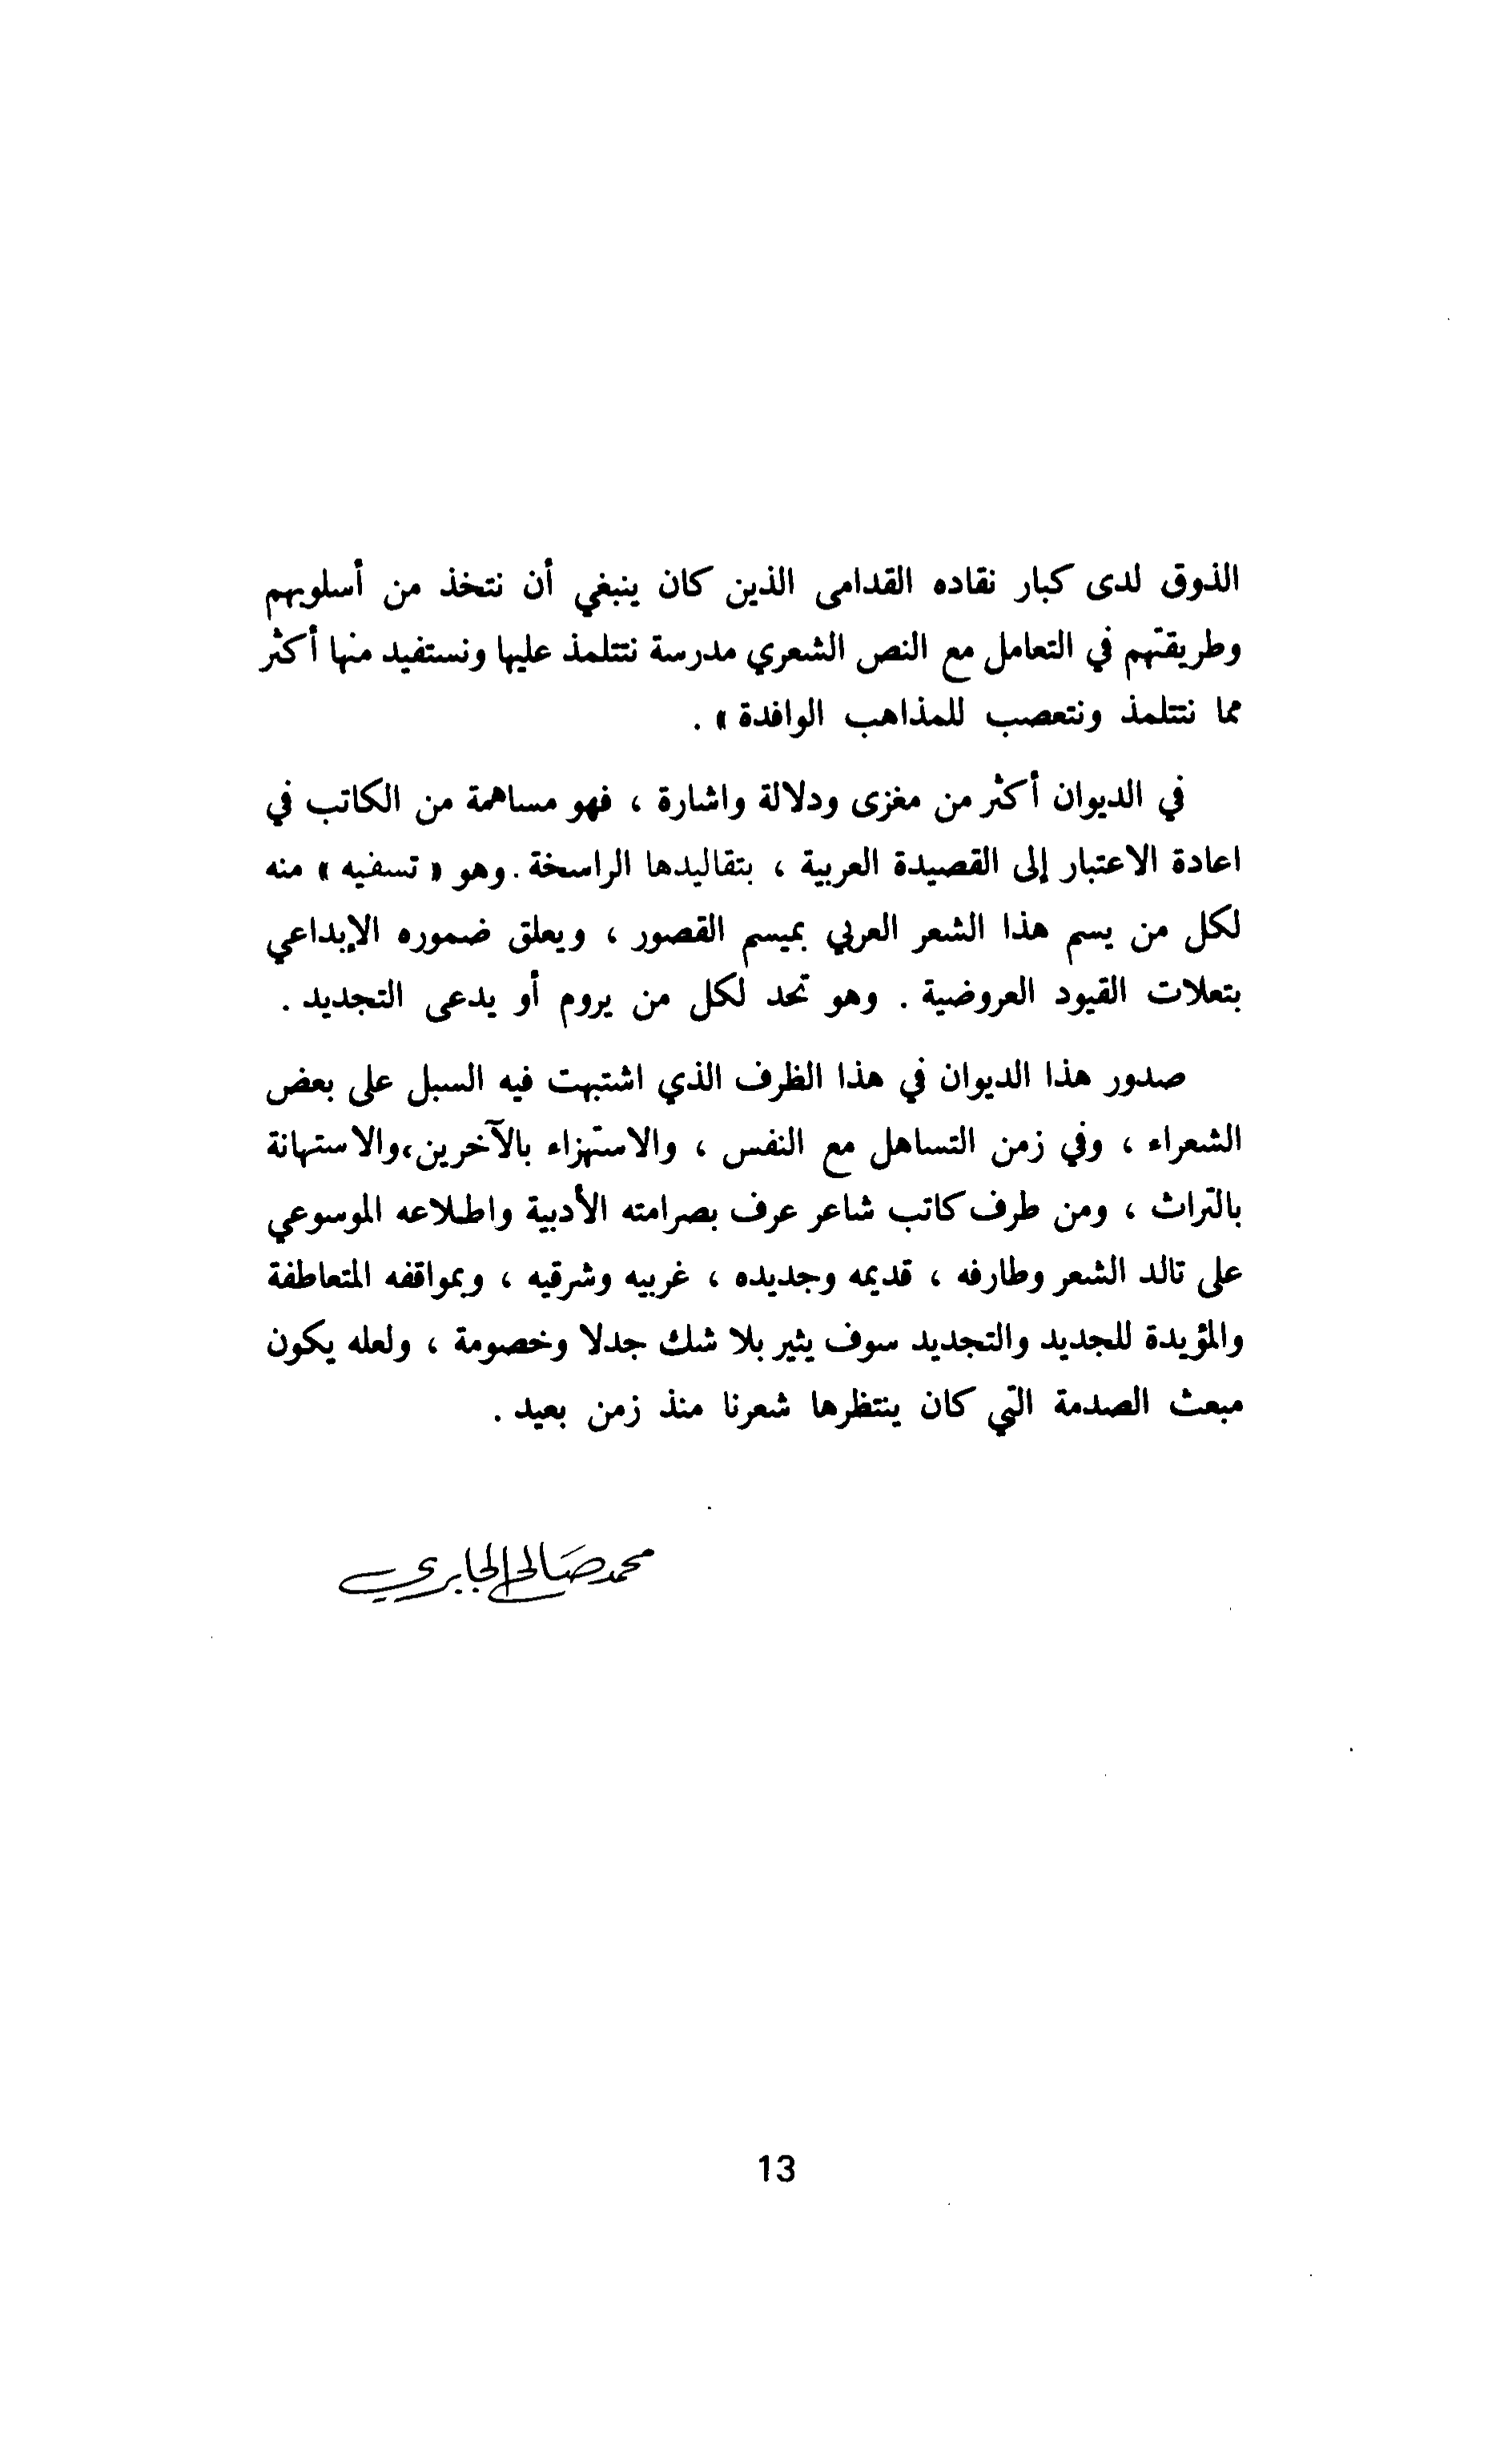 الذوق لدى كبار نقاده القدامى الذين كان ينبغي أن نتخذ من أسلوبهم
وطريقتهم في التعامل مع النص الشعري مدرسة نتتلمذ عليها ونستفيد منها أكثر
مما نتتلمذ ونتعصب للمذاهب الوافدة » .
في الديوان أكثر من مغزى ودلالة واشارة ، فهو مساهمة من الكاتب في
اعادة الاعتبار إلى القصيدة العربية ، بتقاليدها الراسخة . وهو « تسفيه » منه
لكل من يسم هذا الشعر العربي بميسم القصور ، ويعلق ضموره الإبداعي
بتعلات القيود العروضية . وهو تحد لكل من يروم أو يدعى التجديد .
صدور هذا الديوان في هذا الظرف الذي اشتبهت فيه السبل على بعض
الشعراء ، وفي زمن التساهل مع النفس ، والاستهزاء بالآخرين،والاستهانة
بالتراث ، ومن طرف كاتب شاعر عرف بصرامته الأدبية واطلاعه الموسوعي
على تالد الشعر وطارفه ، قديمه وجديده ، غربيه وشرقيه ، وبمواقفه المتعاطفة
والمؤيدة للجديد والتجديد سوف يثير بلا شك جدلا وخصومة ، ولعله يكون
مبعث الصدمة التي كان ينتظرها شعرنا منذ زمن بعيد .
محمد صالح الجابري
13